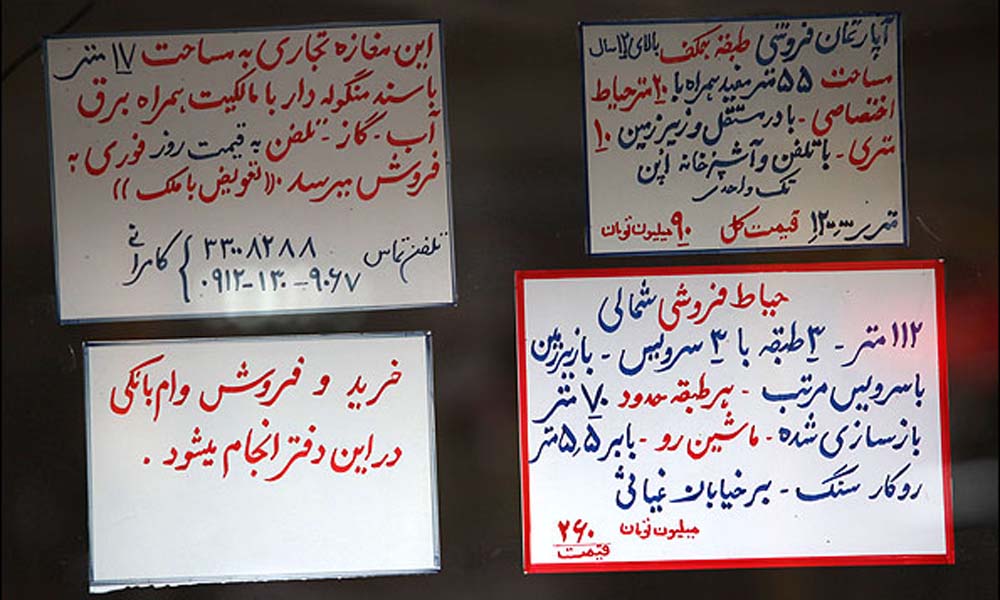 آپارتمان فروشی طبقه همکف بالای ۱۲ سال
مساحت ۵۵ متر مفید همراه با ۲۰ متر حیاط
اختصاصی - با در مستقل و زیرزمین ۱۰
متری - با تلفن و آشپزخانه اپن
تک واحدی
متری ۱/۲۰۰/۰۰۰ قیمت کل ۹۰ میلیون تومان
این مغازه تجاری به مساحت ۱۷ متر
با سند منگوله دار با مالکیت همراه برق
آب - گاز - تلفن به قیمت روز فوری به
فروش میرسد. ((تعویض با ملک))
تلفن تماس ۳۳۰۰۸۲۸۸ کامرانی
۰۹۱۲-۱۳۰۰-۹۰۶۷
حیاط فروشی شمالی
۱۱۲ متر - ۳ طبقه با ۳ سرویس - با زیرزمین
با سرویس مرتب - هر طبقه حدود ۷۰ متر
بازسازی شده - ماشین رو - با بر ۵,۵ متر
روکار سنگ - بر خیابان غیاثی
۲۶۰ میلیون تومان
قیمت
خرید و فروش وام بانکی
در این دفتر انجام میشود.